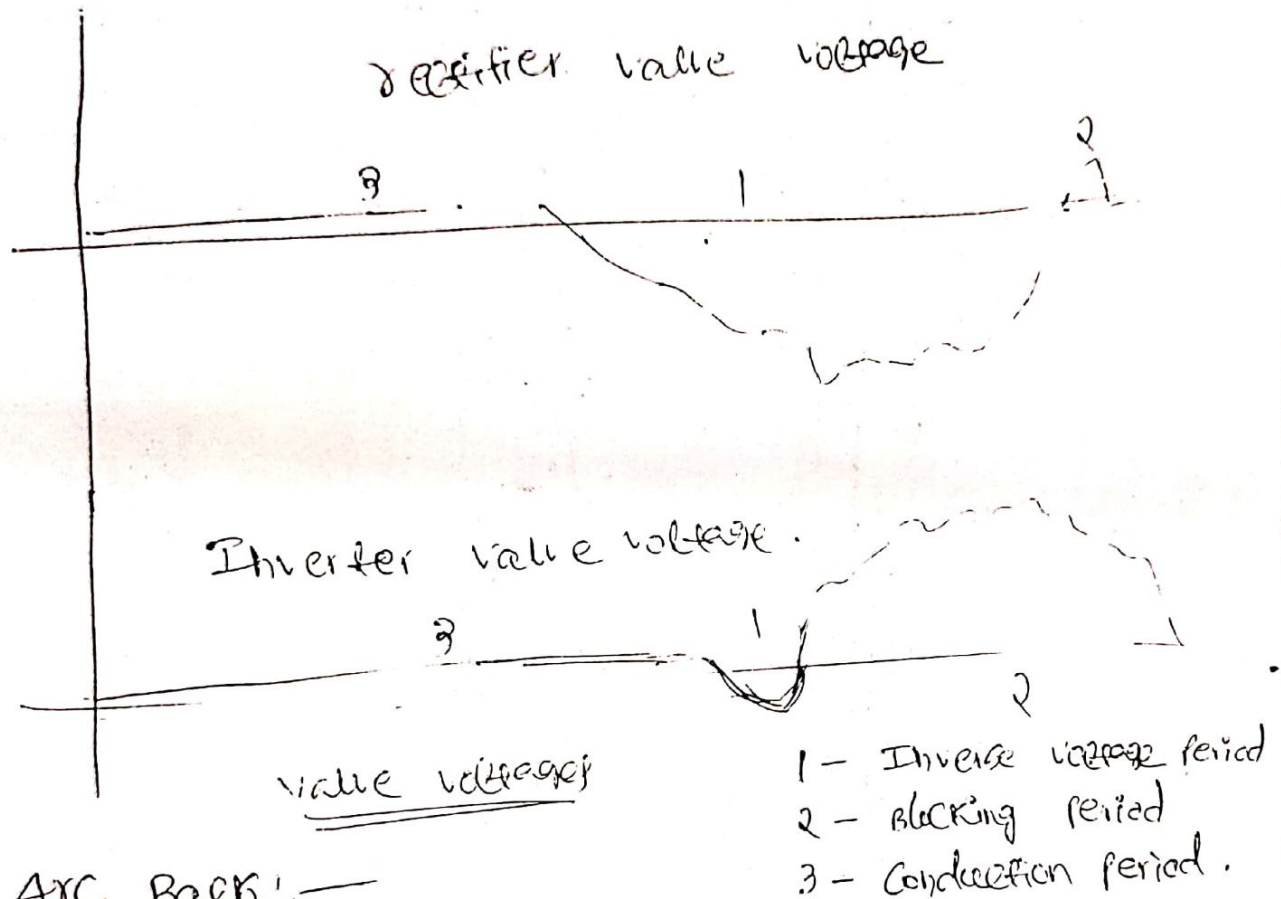 rectifier valve voltage
3
1
2
Inverter valve voltage.
3
1
2
valve voltages
1 - Inverse voltage period
2 - Blocking period
3 - Conduction period.
Arc Back : —